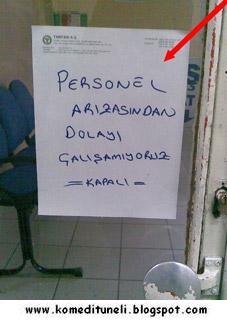 TARTAN A.Ş.
PERSONEL
ARIZASINDAN
DOLAYI
ÇALIŞAMIYORUZ
=KAPALI=
www.komedituneli.blogspot.com